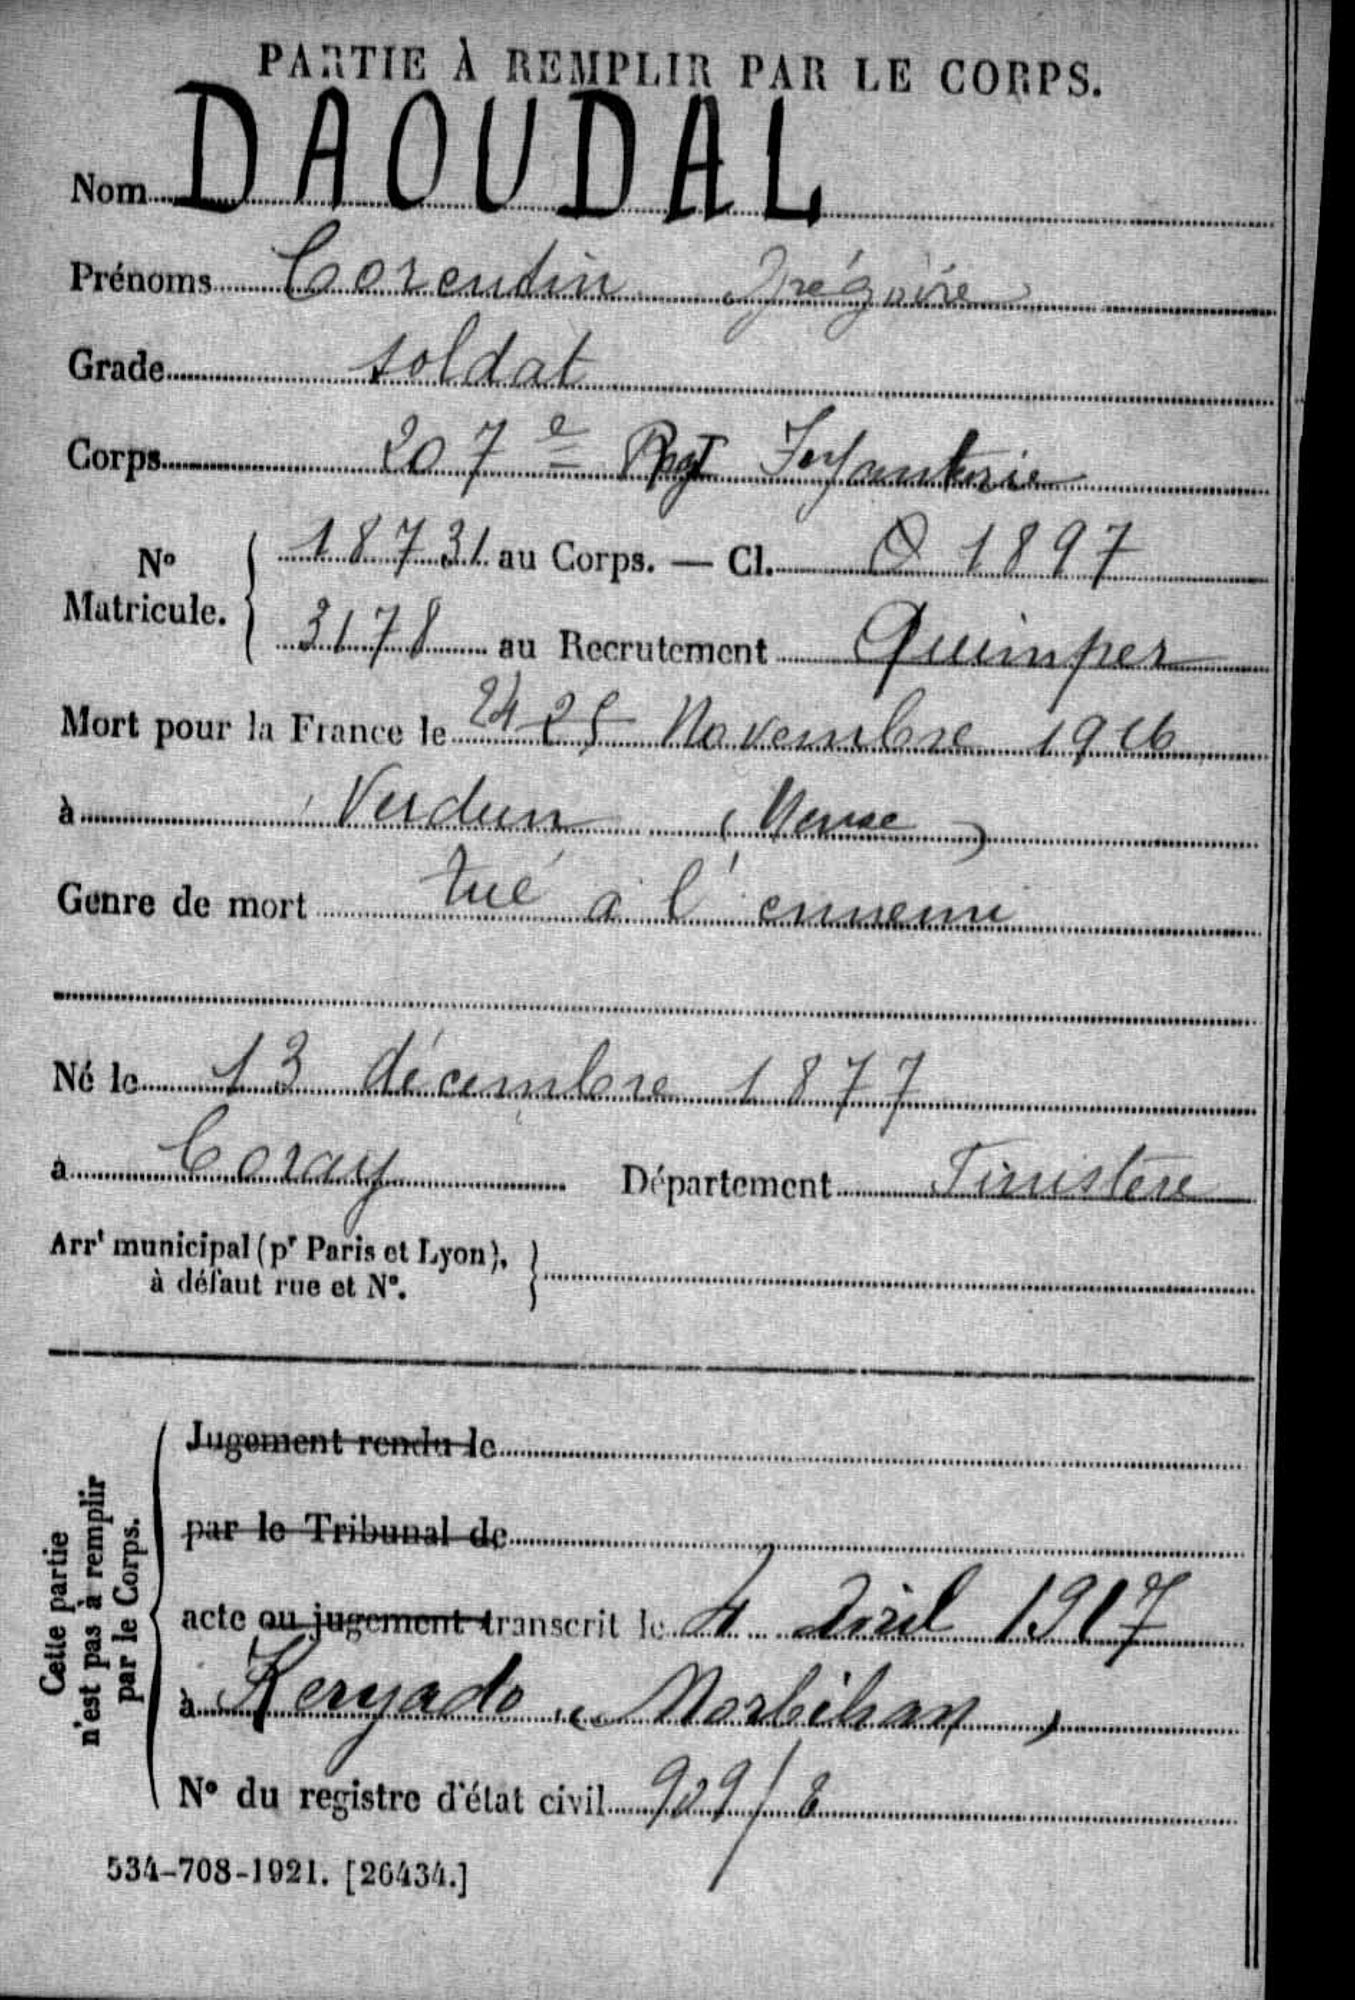 PARTIE À REMPLIR PAR LE CORPS.
Nom DAOUDAL
Prénoms Corentin Grégoire
Grade soldat
Corps 207e Rgt Infanterie
No Matricule. 18731 au Corps. — Cl. 1897
3178 au Recrutement Quimper
Mort pour la France le 24 25 Novembre 1916
à Verdun (Meuse)
Genre de mort tué à l'ennemi
Né le 13 décembre 1877
à Coray Département Finistère
Arrt municipal (pr Paris et Lyon),
à défaut rue et No.
Cette partie
n'est pas à remplir
par le Corps.
Jugement rendu le
par le Tribunal de
acte ou jugement transcrit le 4 Avril 1917
à Keryado (Morbihan)
No du registre d'état civil 929/8
534-708-1921. [26434.]